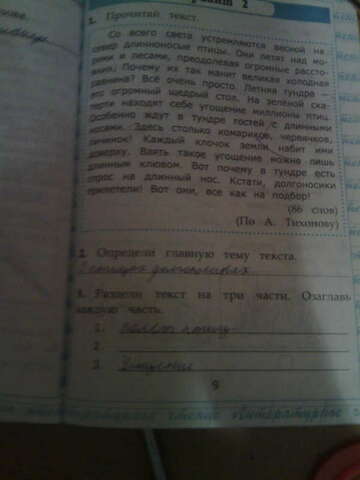 2
1. Прочитай текст.
Со всего света устремляются весной на
север длинноносые птицы. Они летят над мо-
рями и лесами, преодолевая огромные рассто-
яния. Почему их так манит великая холодная
равнина? Всё очень просто. Летняя тундра —
это огромный щедрый стол. На зелёной ска-
терти находят себе угощение миллионы птиц.
Особенно ждут в тундре гостей с длинными
носами. Здесь столько комариков, червячков,
личинок! Каждый клочок земли набит ими
доверху. Взять такое угощение можно лишь
длинным клювом. Вот почему в тундре есть
спрос на длинный нос. Кстати, долгоносики
прилетели! Вот они, все как на подбор!
(86 слов)
(По А. Тихонову)
2. Определи главную тему текста.
3. Раздели текст на три части. Озаглавь
каждую часть.
1.
2.
3.
9
литературное чтение литературное